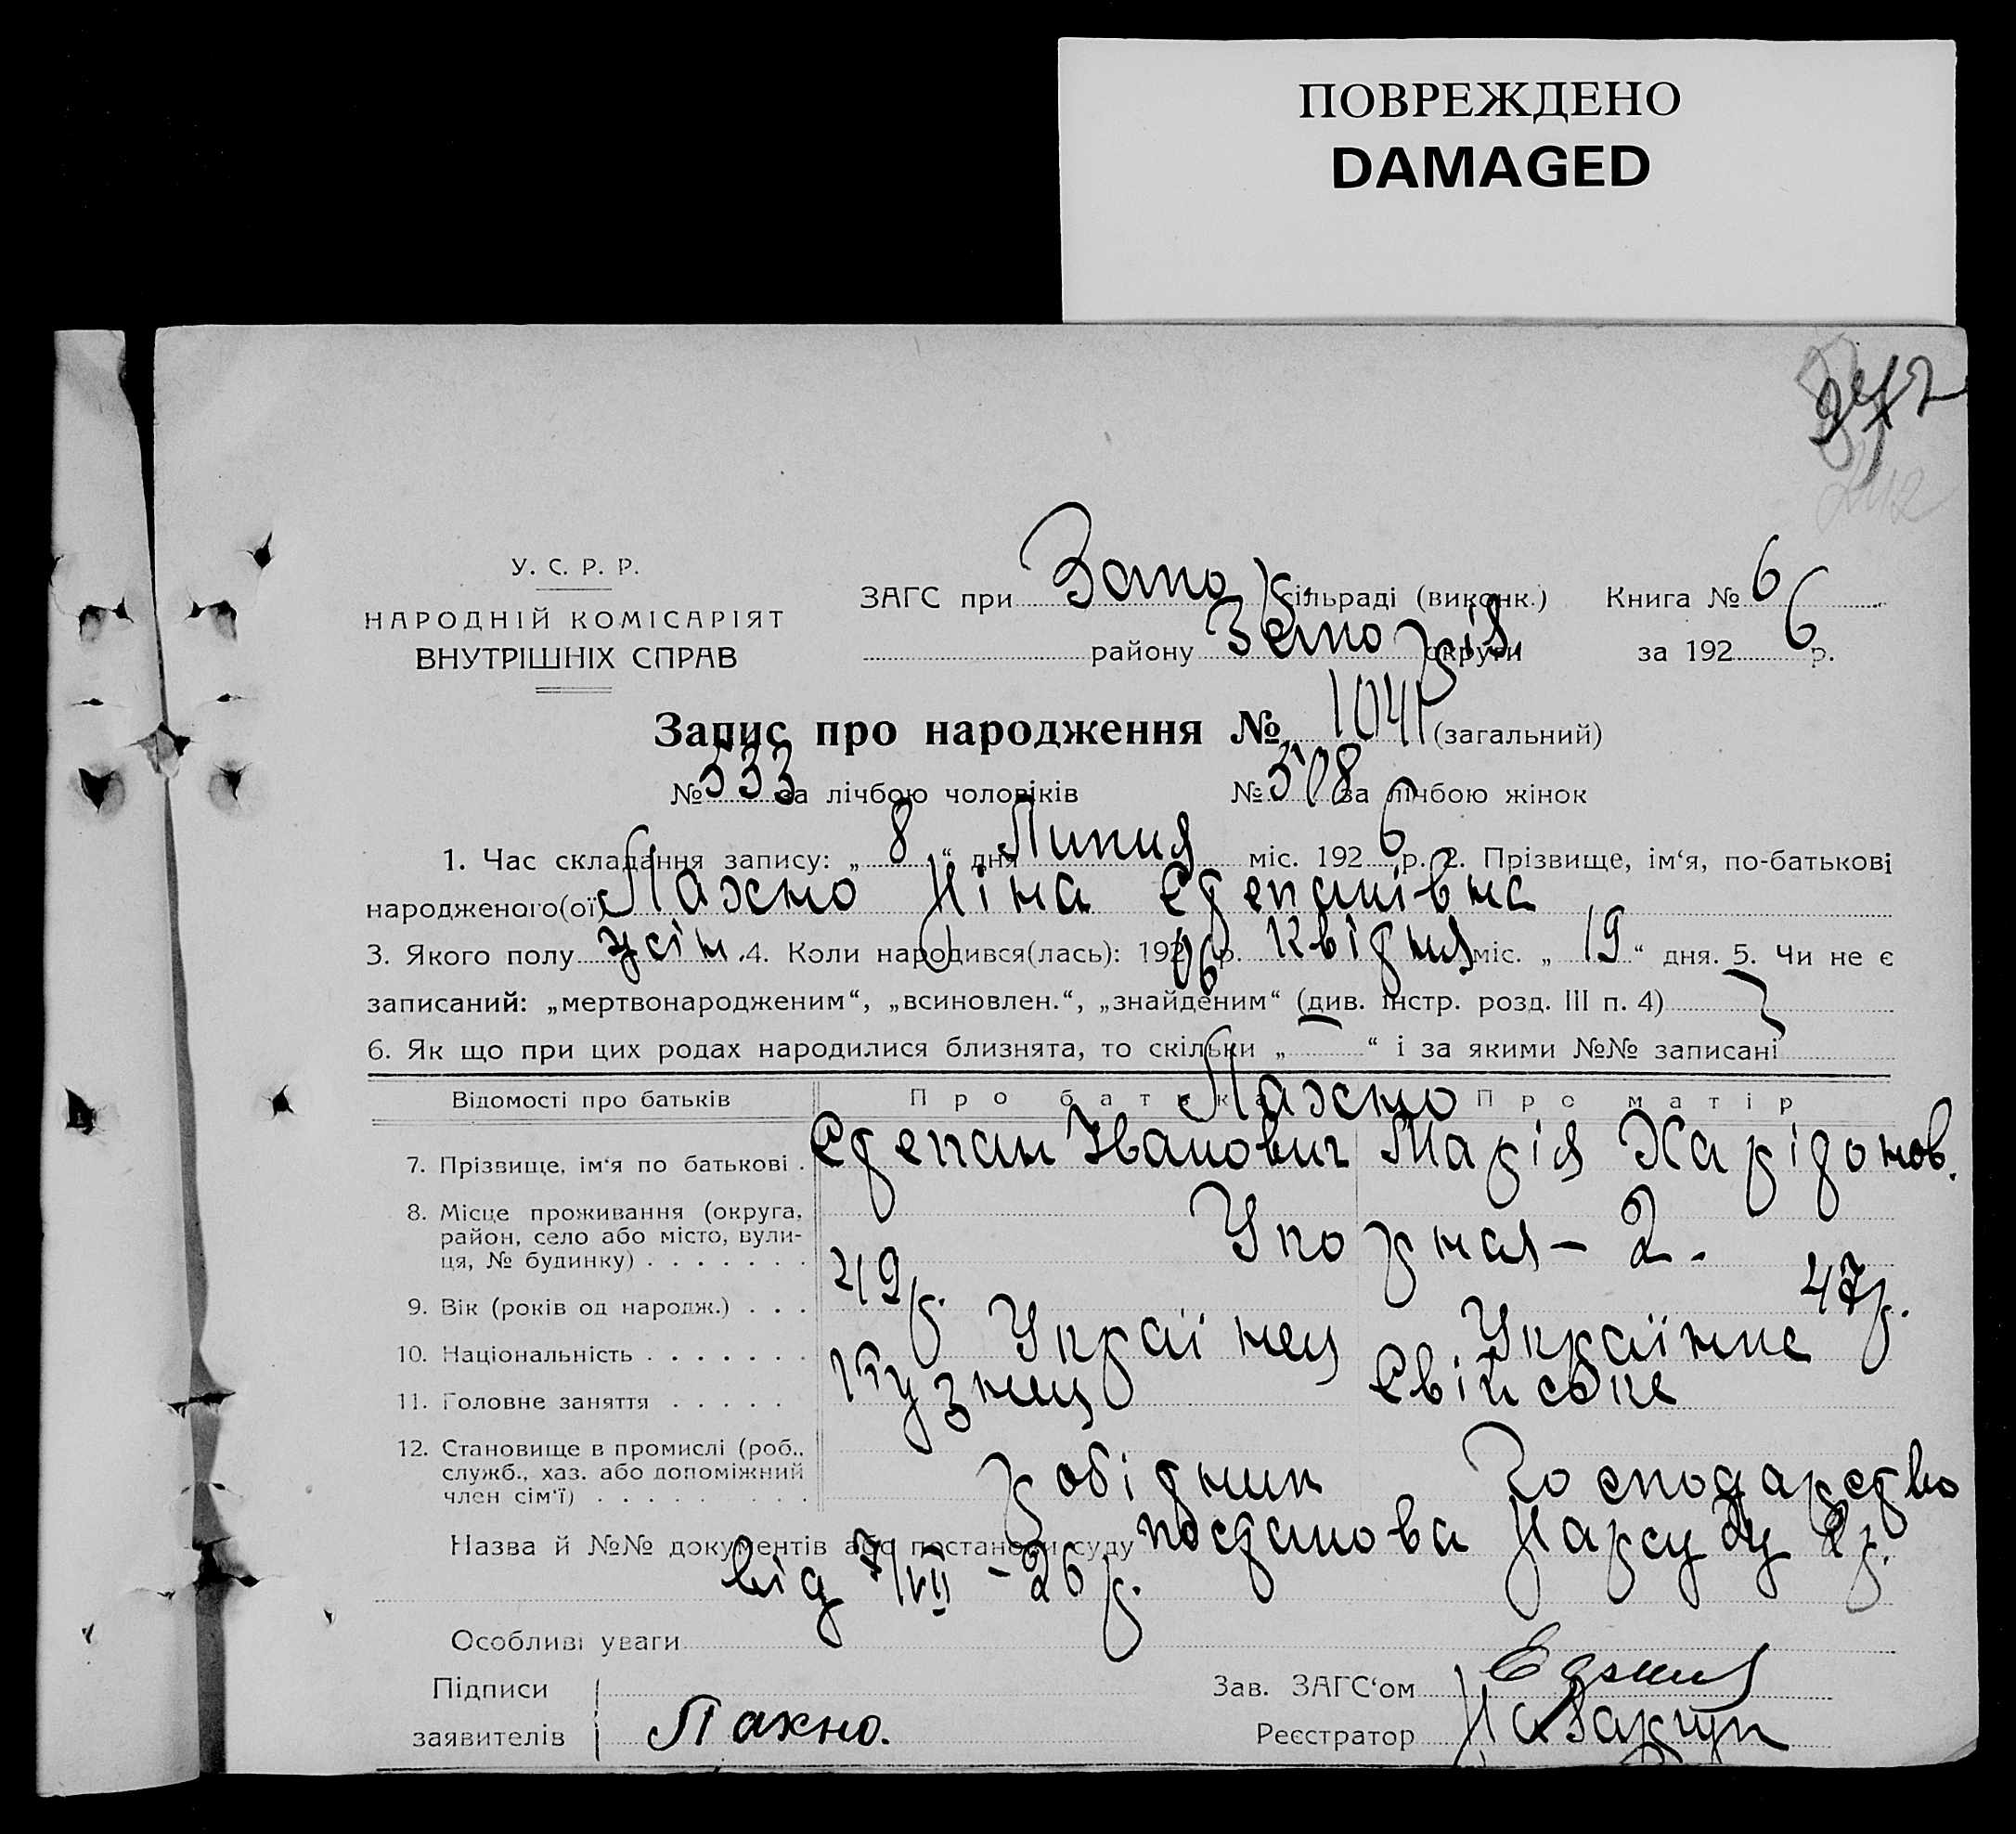 ПОВРЕЖДЕНО
DAMAGED
У. С. Р. Р.
НАРОДНІЙ КОМІСАРІЯТ
ВНУТРІШНІХ СПРАВ
ЗАГС при Запо сільраді (виконк.) Книга № 6
району Запоріз. округи за 1926 р.
Запис про народження № 1041 (загальний)
№ 533 за лічбою чоловіків № 508 за лічбою жінок
1. Час складання запису: „ 8 “ дня Липня міс. 1926 р. 2. Прізвище, ім‘я, по-батькові
народженого(ої) Лахно Ніна Степанівна
3. Якого полу жін. 4. Коли народився(лась): 1906 р. Квідня міс. „ 19 “ дня. 5. Чи не є
записаний: „мертвонародженим“, „всиновлен.“, „знайденим“ (див. інстр. розд. III п. 4)
6. Як що при цих родах народилися близнята, то скільки „ — “ і за якими №№ записані
Відомості про батьків Про батька Про матір
Лахно
7. Прізвище, ім‘я по батькові . Степан Іванович Марія Харітонов.
8. Місце проживання (округа,
район, село або місто, вули-
ця, № будинку) . . . . . . . Упорная – 2.
9. Вік (років од народж.) . . . 49 р. 47 р.
10. Національність . . . . . . . Українец Українка
11. Головне заняття . . . . . Кузнец Свійське
12. Становище в промислі (роб.,
служб., хаз. або допоміжний
член сім‘ї) . . . . . . . . . робітник Господарство
Назва й №№ документів або постанови суду постанова Нарсуду 2 р.
від 7/VII – 26 р.
Особливі уваги
Підписи
заявителів Лахно.
Зав. ЗАГС‘ом
Реєстратор